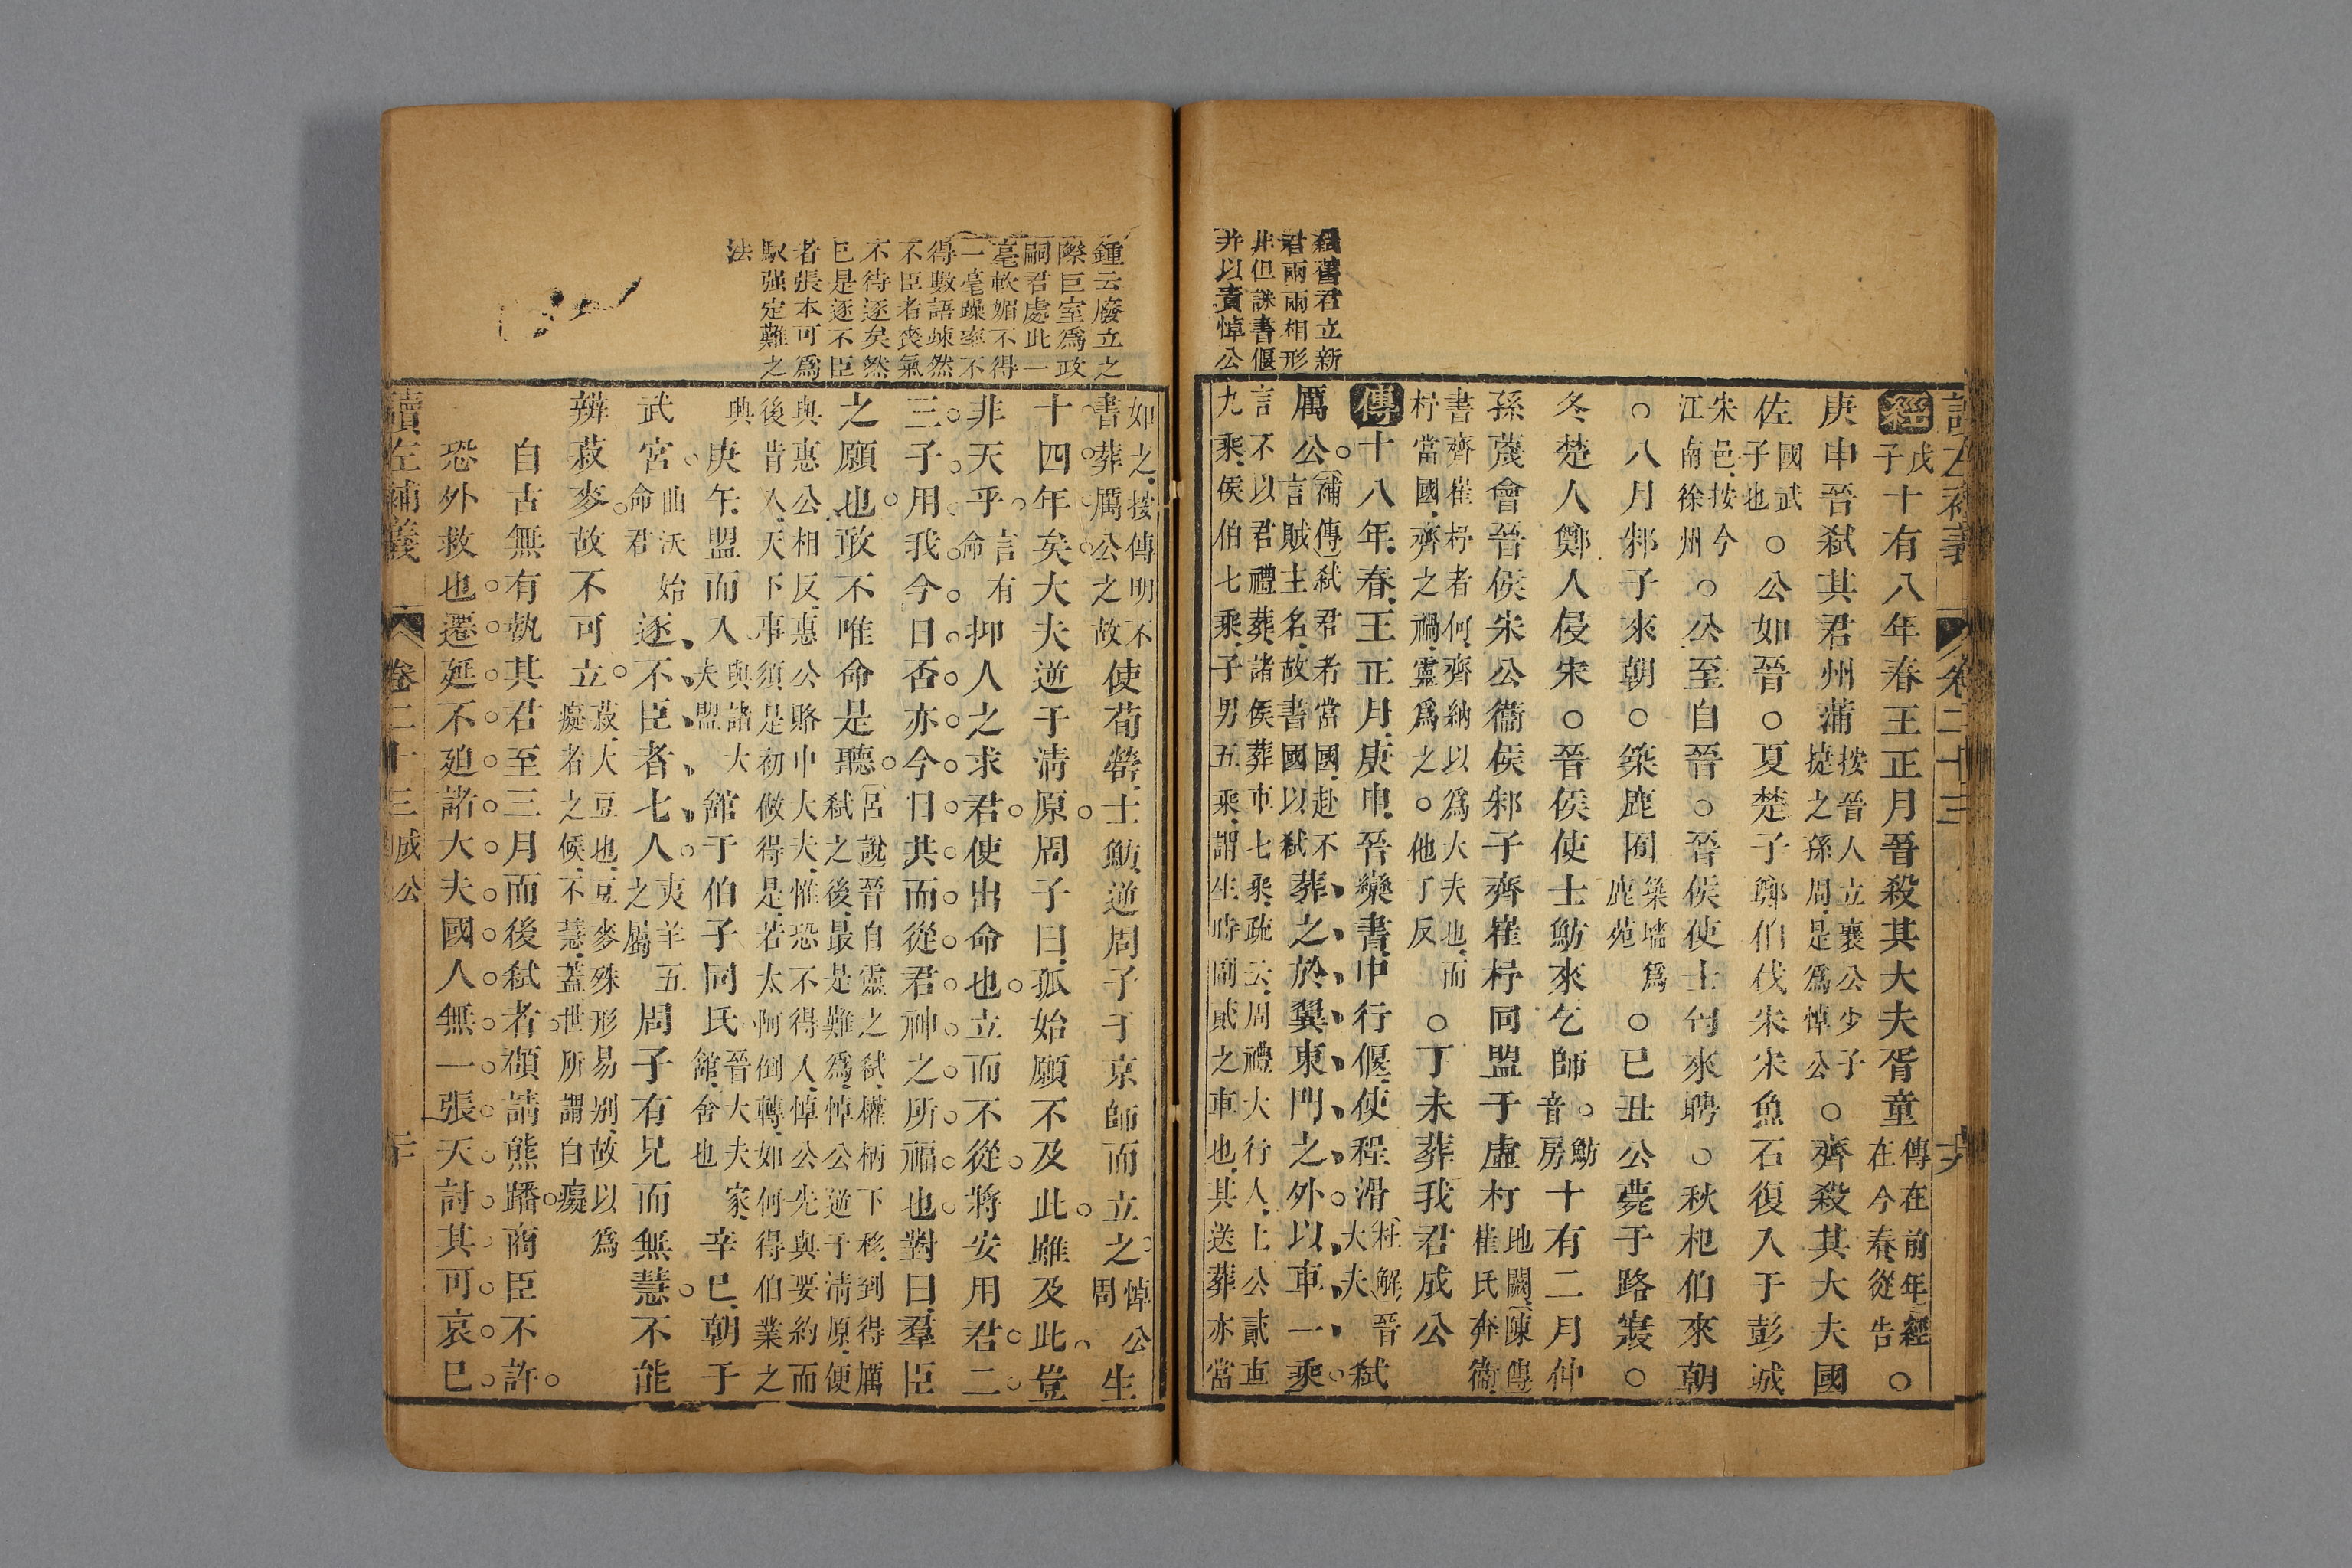 弒舊君立新
君兩兩相形
非但誅書偃
并以責悼公
經戊子十有八年春王正月晉殺其大夫胥童傳在前年經在今春從告○
庚申晉弒其君州蒲按晉人立襄公少子捷之孫周是爲悼公○齊殺其大夫國
佐國武子也○公如晉○夏楚子鄭伯伐宋宋魚石復入于彭城
宋邑按今江南徐州○公至自晉○晉侯使士匄來聘○秋杞伯來朝
○八月邾子來朝○築鹿囿築墻爲鹿苑○己丑公薨于路寢○
冬楚人鄭人侵宋○晉侯使士魴來乞師魴音房○十有二月仲
孫蔑會晉侯宋公衞侯邾子齊崔杼同盟于虛朾地闕陳傳崔氏奔衞
書齊崔杼者何齊納以爲大夫也而杼當國齊之禍靈爲之○他丁反○丁未葬我君成公
傳十八年春王正月庚申晉欒書中行偃使程滑杜解晉大夫弒
厲公補傳弒君者當國赴不言賊主名故書國以弒葬之於翼東門之外以車一乘
言不以君禮葬諸侯葬車七乘疏云周禮大行人上公貳車九乘侯伯七乘子男五乘謂生時副貳之車也其送葬亦當
讀左補義
卷二十三
鍾云廢立之
際巨室爲政
嗣君處此一
毫軟媚不得
一毫躁率不
得數語竦然
不臣者喪氣
不待逐矣然
已是逐不臣
者張本可爲
馭强定難之
法
如之按傳明不書葬厲公之故使荀罃士魴逆周子于京師而立之悼公周生
十四年矣大夫逆于清原周子曰孤始願不及此雖及此豈
非天乎言有命抑人之求君使出命也立而不從將安用君二
三子用我今日否亦今日共而從君神之所福也對曰羣臣
之願也敢不唯命是聽呂說晉自靈之弒權柄下移到得厲弒之後最是難爲悼公逆于清原便
與惠公相反惠公賂中大夫惟恐不得人悼公先與要約而後肯入天下事須是初做得是若太阿倒轉如何得伯業之
興庚午盟而入與諸大夫盟館于伯子同氏晉大夫家館舍也辛巳朝于
武宮曲沃始命君逐不臣者七人夷羊五之屬周子有兄而無慧不能
辨菽麥故不可立菽大豆也豆麥殊形易別故以爲癡者之候不慧蓋世所謂白癡
自古無有執其君至三月而後弒者頑請熊蹯商臣不許
恐外救也遷延不廹諸大夫國人無一張天討其可哀已
讀左補義
卷二十三 成公